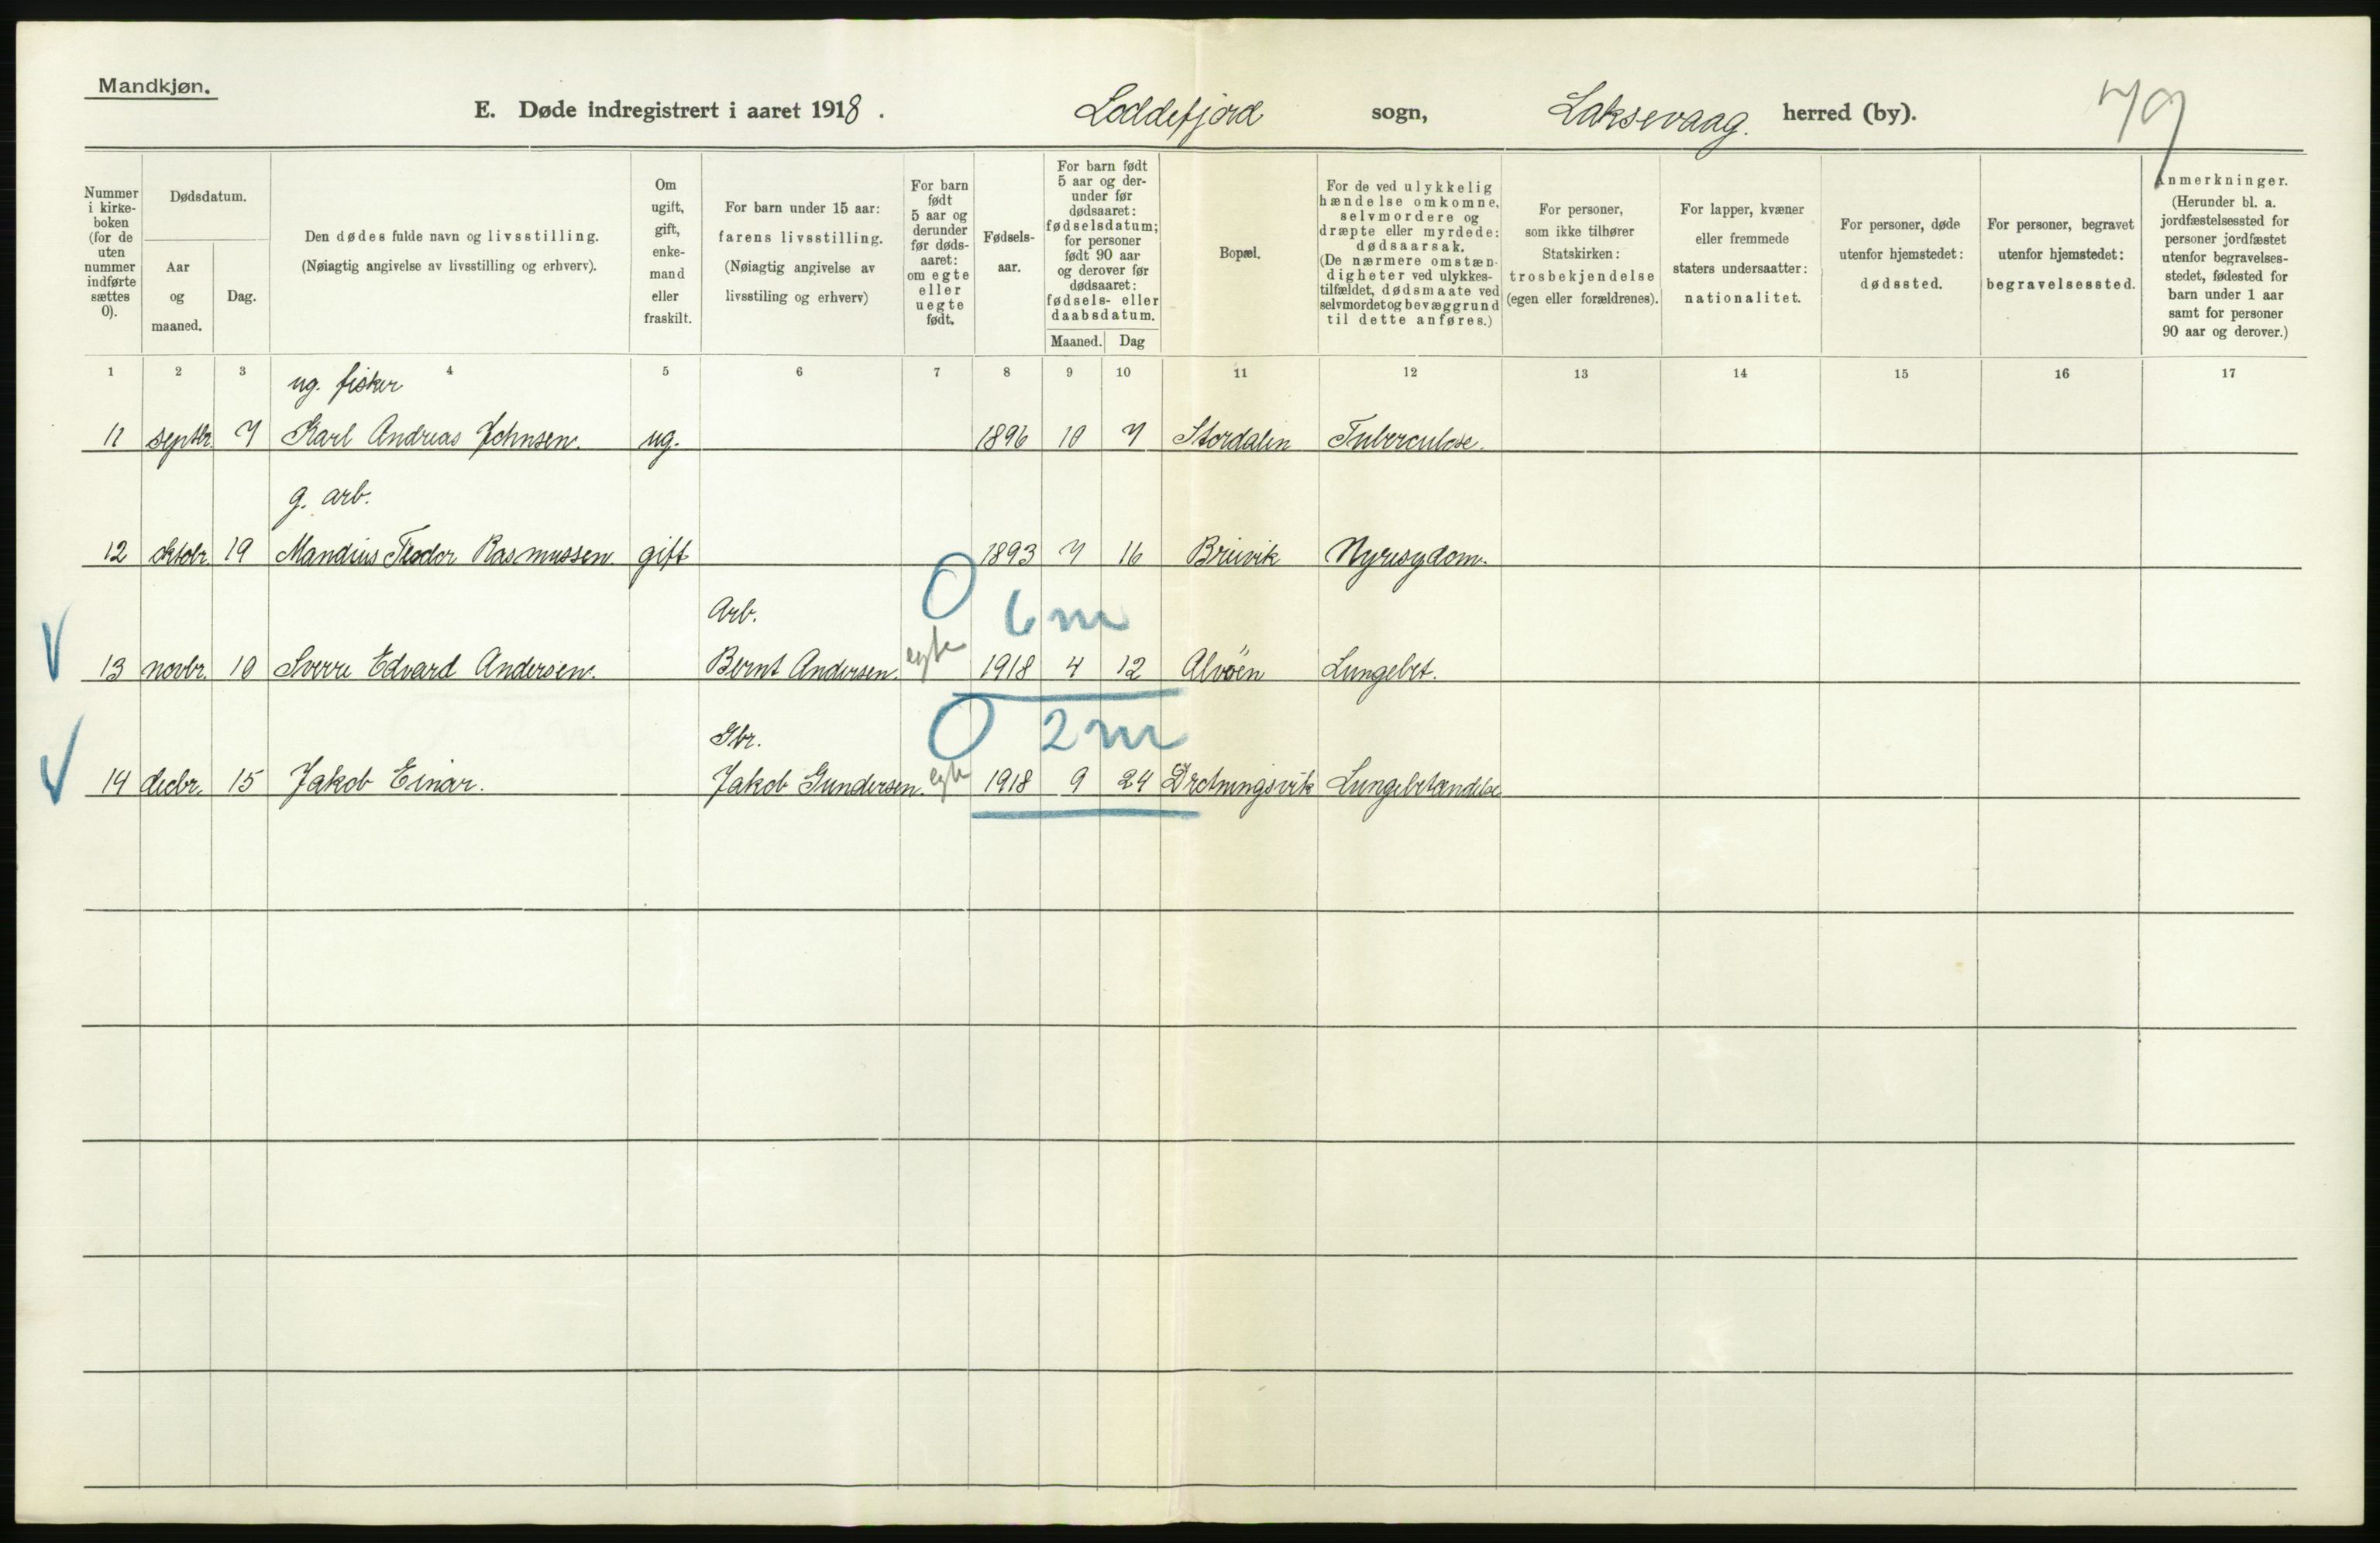 Mandkjøn.
E. Døde indregistrert i aaret 1918.
Loddefjord sogn, Laksevaag. herred (by).
79
Nummer i kirke-boken (for de uten nummer indførte sættes 0).
Dødsdatum.
Aar og maaned.
Dag.
Den dødes fulde navn og livsstilling.
(Nøiagtig angivelse av livsstilling og erhverv).
Om ugift, gift, enke-mand eller fraskilt.
For barn under 15 aar:
farens livsstilling.
(Nøiagtig angivelse av
livsstiling og erhverv)
For barn født 5 aar og derunder før døds-aaret: om egte eller uegte født.
Fødsels-aar.
For barn født 5 aar og der-under før dødsaaret: fødselsdatum; for personer født 90 aar og derover før dødsaaret: fødsels- eller daabsdatum.
Maaned. Dag
Bopæl.
For de ved ulykkelig hændelse omkomne, selvmordere og dræpte eller myrdede: dødsaarsak. (De nærmere omstæn-digheter ved ulykkes-tilfældet, dødsmaate ved selvmordet og bevæggrund til dette anføres.)
For personer, som ikke tilhører Statskirken: trosbekjendelse (egen eller forældrenes).
For lapper, kvæner eller fremmede staters undersaatter: nationalitet.
For personer, døde utenfor hjemstedet: dødssted.
For personer, begravet utenfor hjemstedet: begravelsessted.
Anmerkninger. (Herunder bl. a. jordfæstelsessted for personer jordfæstet utenfor begravelses-stedet, fødested for barn under 1 aar samt for personer 90 aar og derover.)
1 2 3 4 5 6 7 8 9 10 11 12 13 14 15 16 17
ug. fisker
11 septbr. 7 Karl Andreas Johnsen. ug. 1896 10 7 Stordalen Tuberculose.
g. arb.
12 oktobr. 19 Mandius Teodor Rasmussen. gift 1893 7 16 Breivik Nyresygdom.
Arb. 0 6 m
13 novbr. 10 Sverre Edvard Andersen. Bernt Andersen. egte 1918 4 12 Alvøen Lungebet.
Gbr. 0 2 m
14 decbr. 15 Jakob Einar. Jakob Gundersen. egte 1918 9 24 Drotningsvik Lungebetændelse